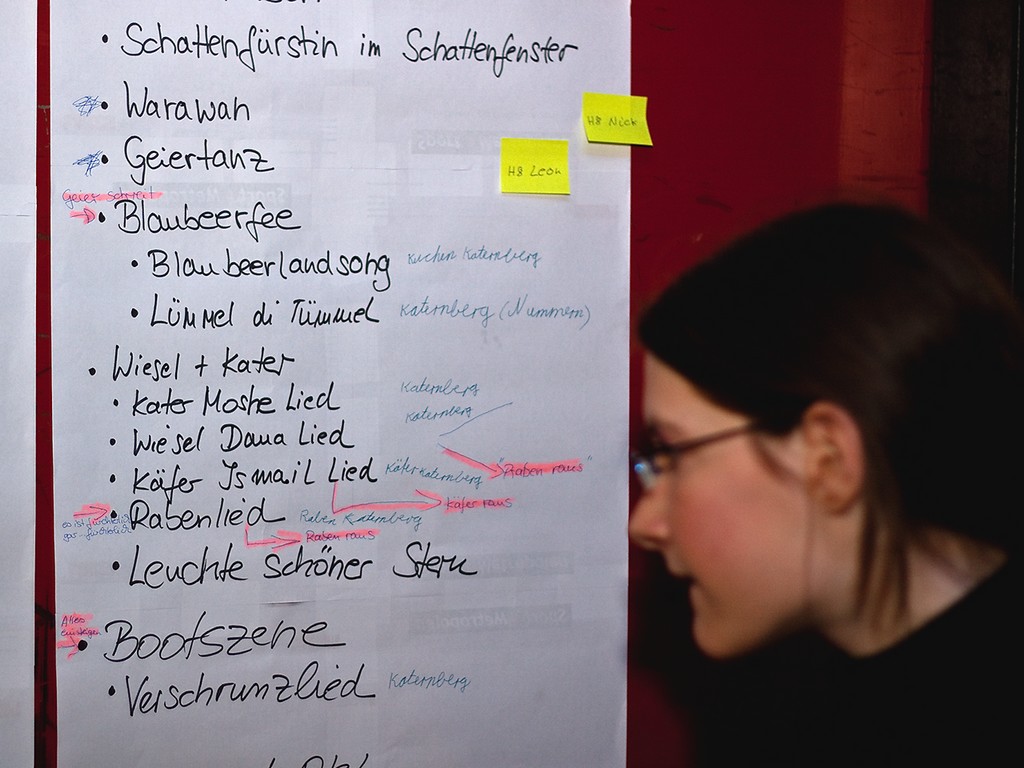 • Schattenfürstin im Schattenfenster
• Warawah
H8 Nick
• Geiertanz
H8 Leon
Geier schreit
• Blaubeerfee
• Blaubeerlandsong Kuchen Katernberg
• Lümmel di Tümmel Katernberg (Nummern)
• Wiesel + Kater
• Kater Moshe Lied Katernberg
• Wiesel Dana Lied Katernberg
• Käfer Ismail Lied Käfer Katernberg "Raben raus"
Käfer raus
• Rabenlied Raben Katernberg
es ist fürchterlich
gar fürchterlich
Raben raus
• Leuchte schöner Stern
Alles
einsteigen
• Bootszene
• Verschrunzlied Katernberg